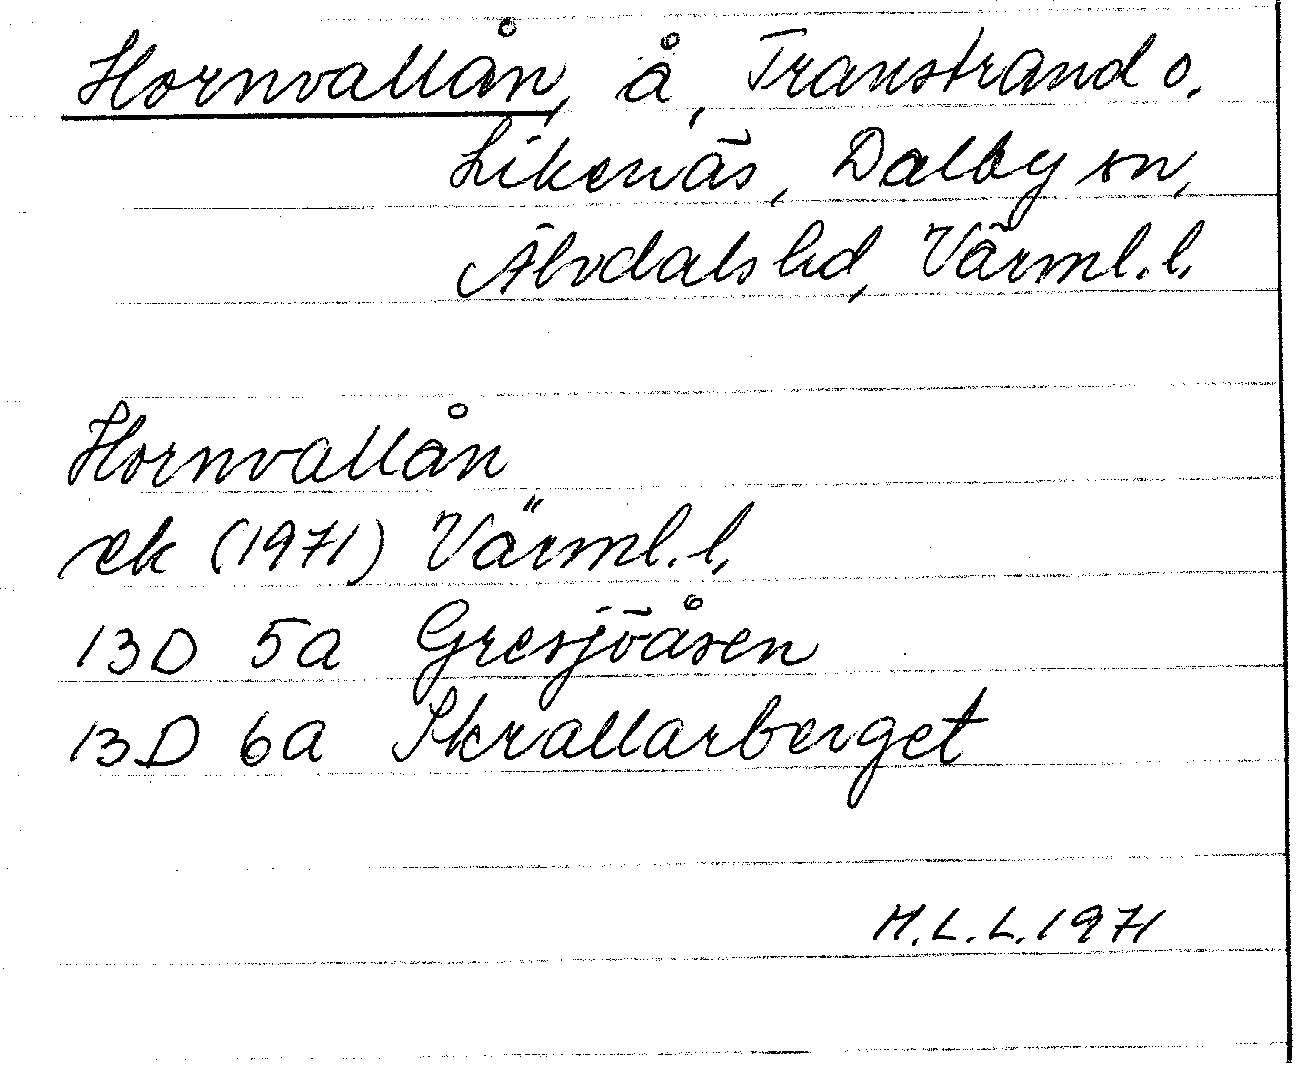 Hornvallån, å, Transtrand o.
Likenäs, Dalby sn,
Älvdals hd, Värml. l.
Hornvallån
ek (1971) Värml. l.
13D 5a Gresjöåsen
13D 6a Skrallarberget
H.L.L. 1971